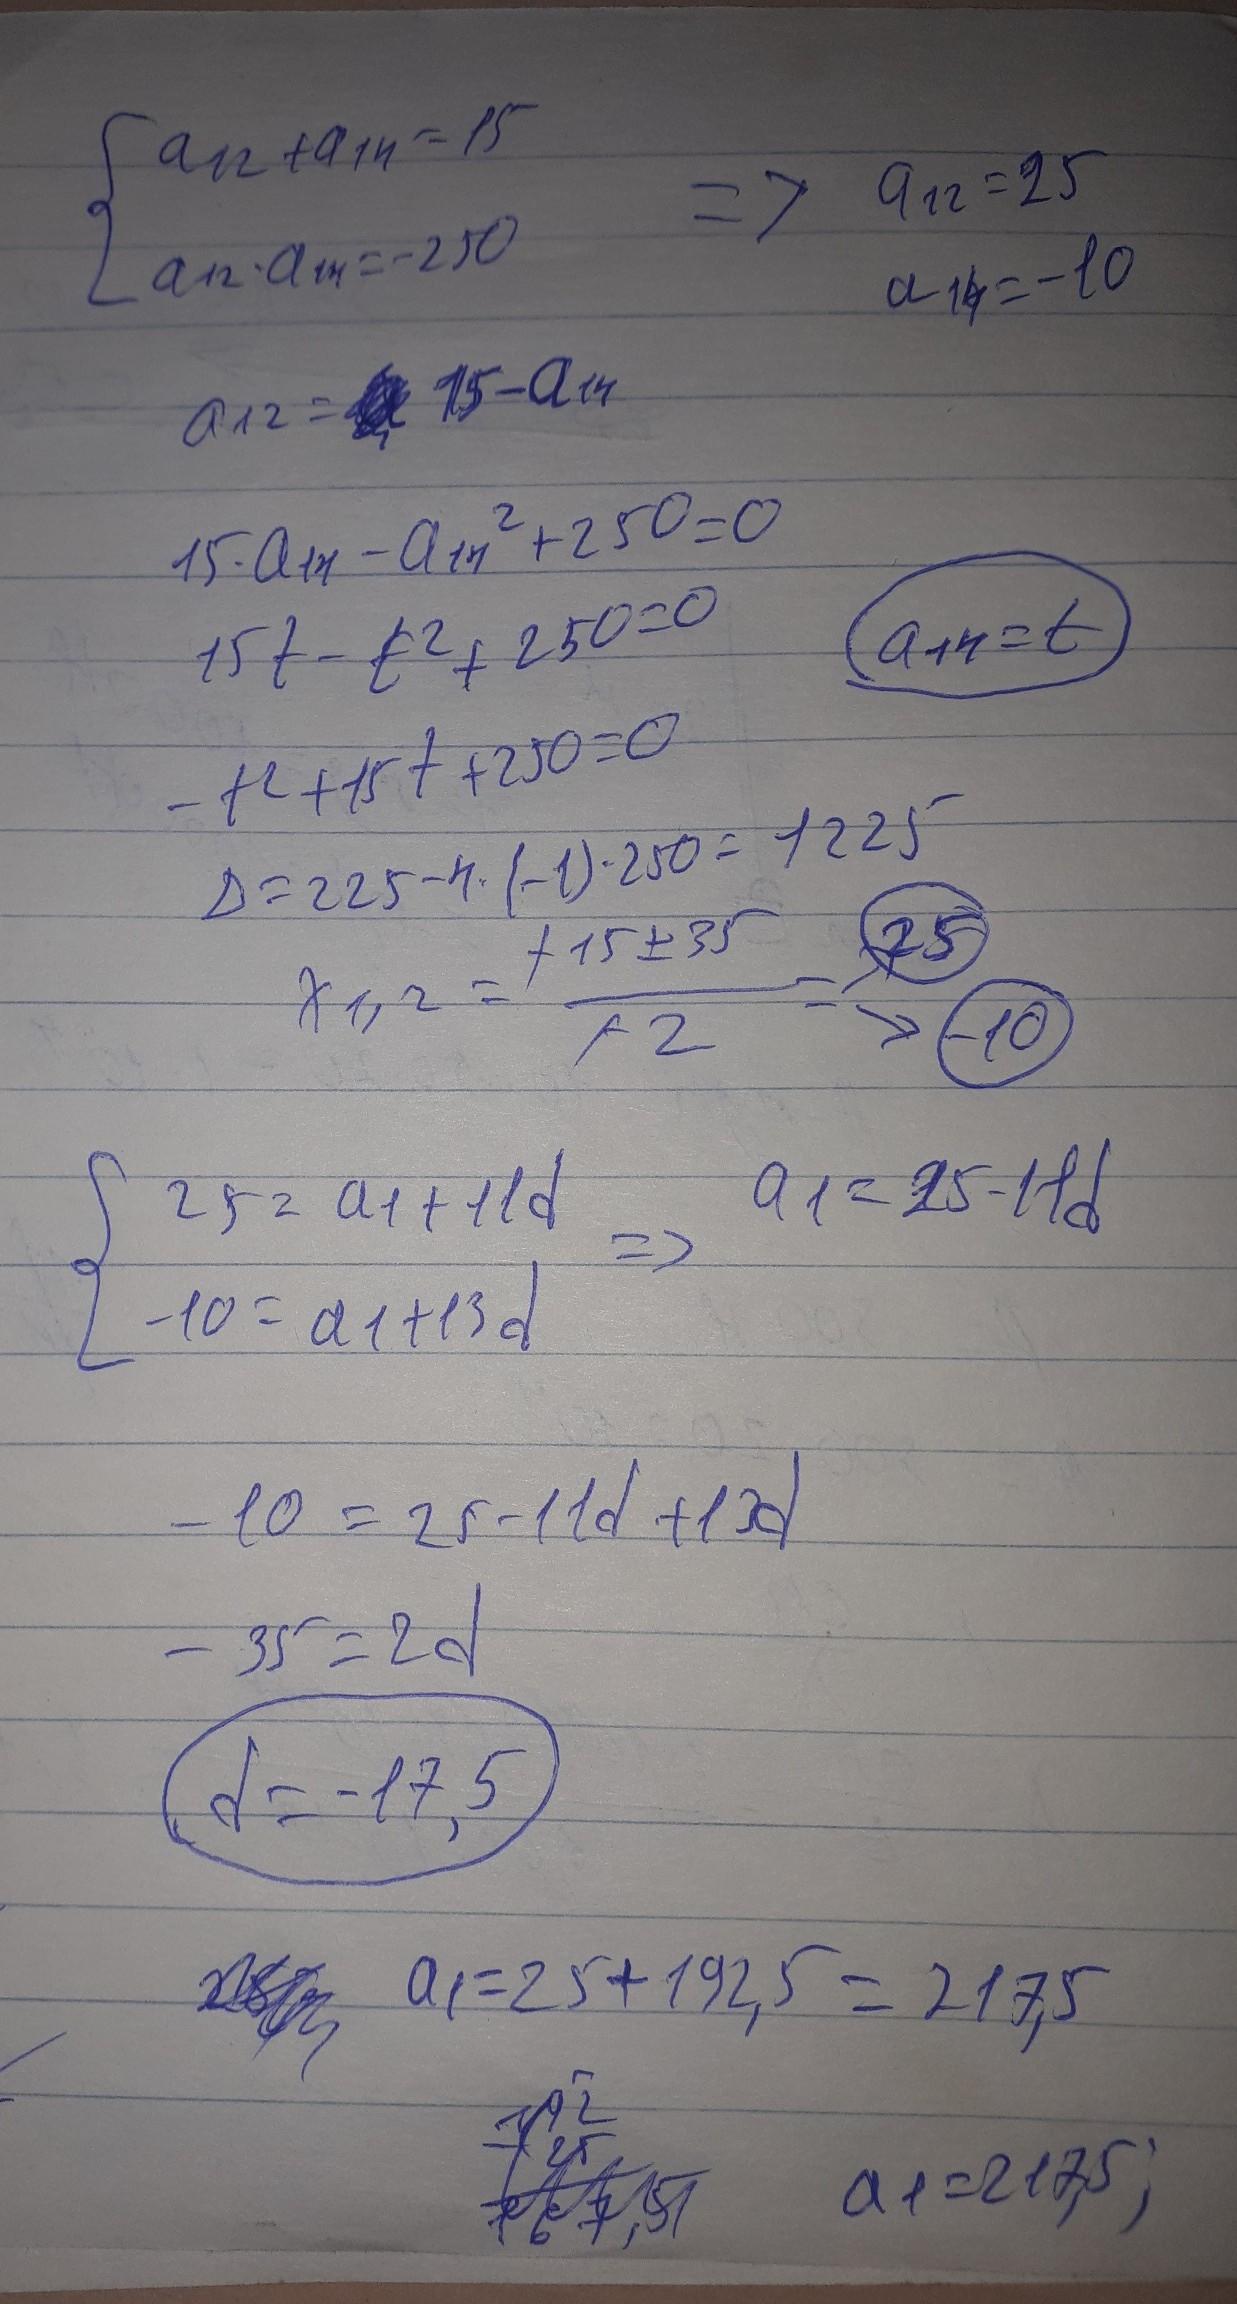 a12 + a14 = 15
a12 · a14 = -250
=> a12 = 25
a14 = -10
a12 = 15 - a14
15 · a14 - a14² + 250 = 0
15t - t² + 250 = 0
a14 = t
- t² + 15t + 250 = 0
D = 225 - 4 · (-1) · 250 = 1225
x1,2 = +15 ± 35 / +2 = 25
-10
25 = a1 + 11d
-10 = a1 + 13d
=> a1 = 25 - 11d
- 10 = 25 - 11d + 13d
- 35 = 2d
d = -17,5
a1 = 25 + 192,5 = 217,5
a1 = 217,5;